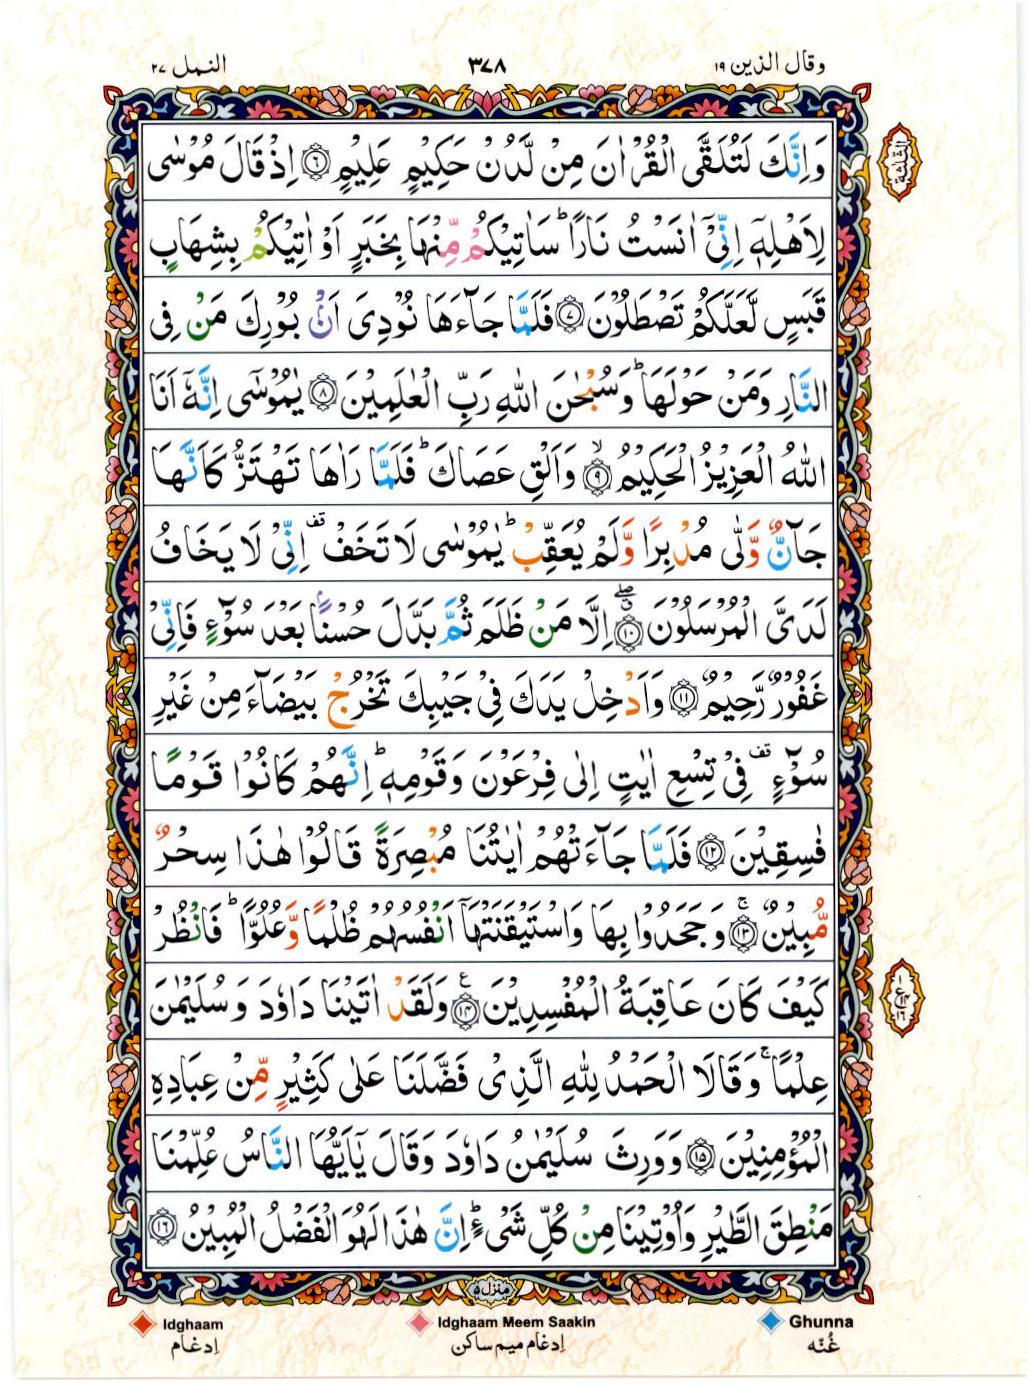 وقال الذين ١٩
٣٧٨
النمل ٢٧
وَاِنَّكَ لَتُلَقَّى الْقُرْاٰنَ مِنْ لَّدُنْ حَكِيْمٍ عَلِيْمٍ ﴿٦﴾ اِذْ قَالَ مُوْسٰى
لِاَهْلِهٖٓ اِنِّىْٓ اٰنَسْتُ نَارًا ؕ سَاٰتِيْكُمْ مِّنْهَا بِخَبَرٍ اَوْ اٰتِيْكُمْ بِشِهَابٍ
قَبَسٍ لَّعَلَّكُمْ تَصْطَلُوْنَ ﴿٧﴾ فَلَمَّا جَآءَهَا نُوْدِىَ اَنْۢ بُوْرِكَ مَنْ فِى
النَّارِ وَمَنْ حَوْلَهَا ؕ وَسُبْحٰنَ اللّٰهِ رَبِّ الْعٰلَمِيْنَ ﴿٨﴾ يٰمُوْسٰٓى اِنَّهٗٓ اَنَا
اللّٰهُ الْعَزِيْزُ الْحَكِيْمُ ﴿٩﴾ۙ وَاَلْقِ عَصَاكَ ؕ فَلَمَّا رَاٰهَا تَهْتَزُّ كَاَنَّهَا
جَآنٌّ وَّلّٰى مُدْبِرًا وَّلَمْ يُعَقِّبْ ؕ يٰمُوْسٰى لَا تَخَفْ قف اِنِّىْ لَا يَخَافُ
لَدَىَّ الْمُرْسَلُوْنَ ﴿١٠﴾ۖ اِلَّا مَنْ ظَلَمَ ثُمَّ بَدَّلَ حُسْنًۢا بَعْدَ سُوْٓءٍ فَاِنِّىْ
غَفُوْرٌ رَّحِيْمٌ ﴿١١﴾ وَاَدْخِلْ يَدَكَ فِىْ جَيْبِكَ تَخْرُجْ بَيْضَآءَ مِنْ غَيْرِ
سُوْٓءٍ قف فِىْ تِسْعِ اٰيٰتٍ اِلٰى فِرْعَوْنَ وَقَوْمِهٖ ؕ اِنَّهُمْ كَانُوْا قَوْمًا
فٰسِقِيْنَ ﴿١٢﴾ فَلَمَّا جَآءَتْهُمْ اٰيٰتُنَا مُبْصِرَةً قَالُوْا هٰذَا سِحْرٌ
مُّبِيْنٌ ﴿١٣﴾ۚ وَجَحَدُوْا بِهَا وَاسْتَيْقَنَتْهَآ اَنْفُسُهُمْ ظُلْمًا وَّعُلُوًّا ؕ فَانْظُرْ
كَيْفَ كَانَ عَاقِبَةُ الْمُفْسِدِيْنَ ﴿١٤﴾ ع وَلَقَدْ اٰتَيْنَا دَاوٗدَ وَسُلَيْمٰنَ
عِلْمًا ۚ وَقَالَا الْحَمْدُ لِلّٰهِ الَّذِىْ فَضَّلَنَا عَلٰى كَثِيْرٍ مِّنْ عِبَادِهِ
الْمُؤْمِنِيْنَ ﴿١٥﴾ وَوَرِثَ سُلَيْمٰنُ دَاوٗدَ وَقَالَ يٰٓاَيُّهَا النَّاسُ عُلِّمْنَا
مَنْطِقَ الطَّيْرِ وَاُوْتِيْنَا مِنْ كُلِّ شَىْءٍ ؕ اِنَّ هٰذَا لَهُوَ الْفَضْلُ الْمُبِيْنُ ﴿١٦﴾
منزل ٥
Ghunna Idghaam Meem Saakin Idghaam
غُنّه إدغام ميم ساكن إدغام